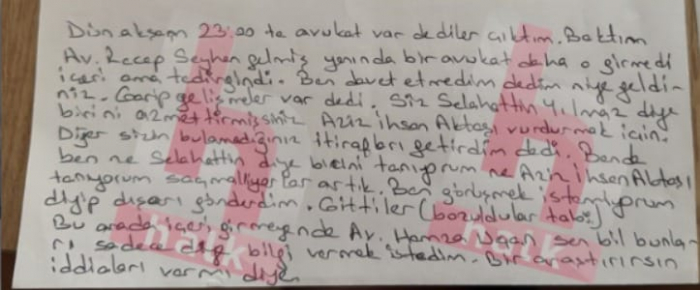 Dün akşam 23:00 te avukat var dediler çıktım. Baktım
Av. Recep Seyhan gelmiş yanında bir avukat daha o girmedi
içeri ama tedirgindi. Ben davet etmedim dedim niye geldi-
niz. Garip gelişmeler var dedi. Siz Selahattin Yılmaz diye
birini azmettirmişsiniz Aziz ihsan Aktaşı vurdurmak için.
Diğer sizin bulamadığınız itirafları getirdim dedi. Bende
ben ne Selahattin diye birini tanıyorum ne Aziz ihsan Aktaşı
tanıyorum saçmalıyorlar artık. Ben görüşmek istemiyorum
diyip dışarı gönderdim. Gittiler (bozuldular tabi)
Bu arada içeri girmeyende Av. Hamza Uçan sen bil bunla-
rı sadece diye bilgi vermek istedim. Bir araştırırsın
iddiaları var mı diye
halk
halk